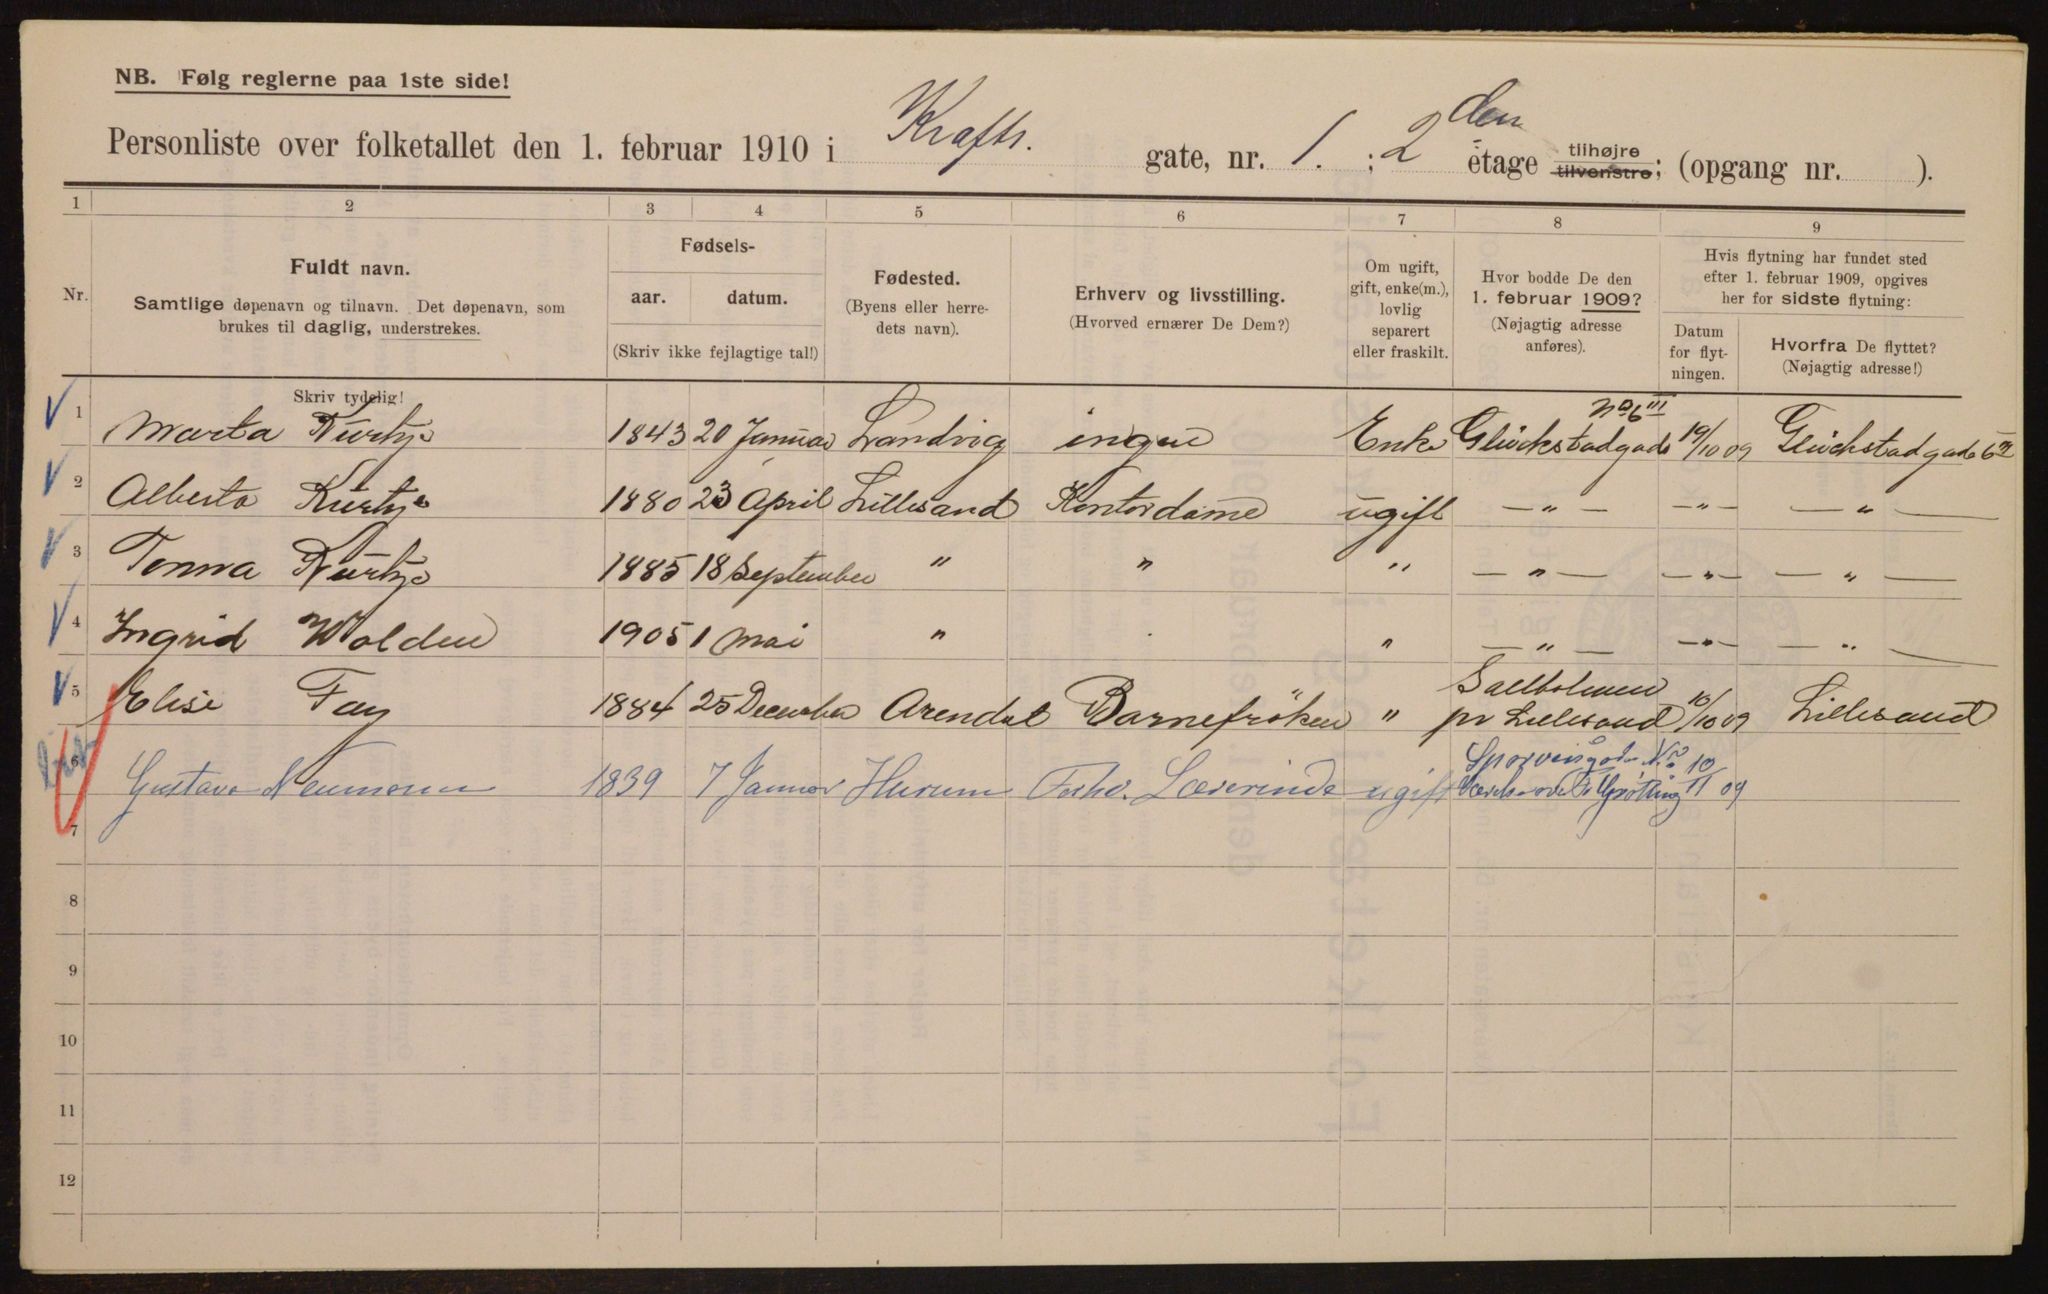 NB. Følg reglerne paa 1ste side!
Personliste over folketallet den 1. februar 1910 i Krafts. gate, nr. 1. ; 2den etage tilhøjre tilvenstre; (opgang nr. ).
1 2 3 4 5 6 7 8 9
Nr.
Fuldt navn.
Samtlige døpenavn og tilnavn. Det døpenavn, som
brukes til daglig, understrekes.
Skriv tydelig!
Fødsels-
aar. datum.
(Skriv ikke fejlagtige tal!)
Fødested.
(Byens eller herre-
dets navn).
Erhverv og livsstilling.
(Hvorved ernærer De Dem?)
Om ugift,
gift, enke(m.),
lovlig
separert
eller fraskilt.
Hvor bodde De den
1. februar 1909?
(Nøjagtig adresse
anføres).
Hvis flytning har fundet sted
efter 1. februar 1909, opgives
her for sidste flytning:
Datum
for flyt-
ningen.
Hvorfra De flyttet?
(Nøjagtig adresse!)
1 Marta 1843 20 Januar Landvig ingen Enke Glückstadgade No 6 III 19/10 09 Glückstadgade 6
2 Alberta 1880 23 April Lillesand Kontordame ugift — " — — " — — " —
3 1885 18 September " " " — " — — " — — " —
4 Ingrid Wolden 1905 1 Mai " " — " — — " — — " —
5 Elise Fay 1884 25 December Arendal Barnefrøken " Saltholmen pr Lillesand 10/10 09 Lillesand
6 Gustava Neumann 1839 7 Januar Hurum Forhv. Lærerinde ugift No 10/11 09
7
8
9
10
11
12